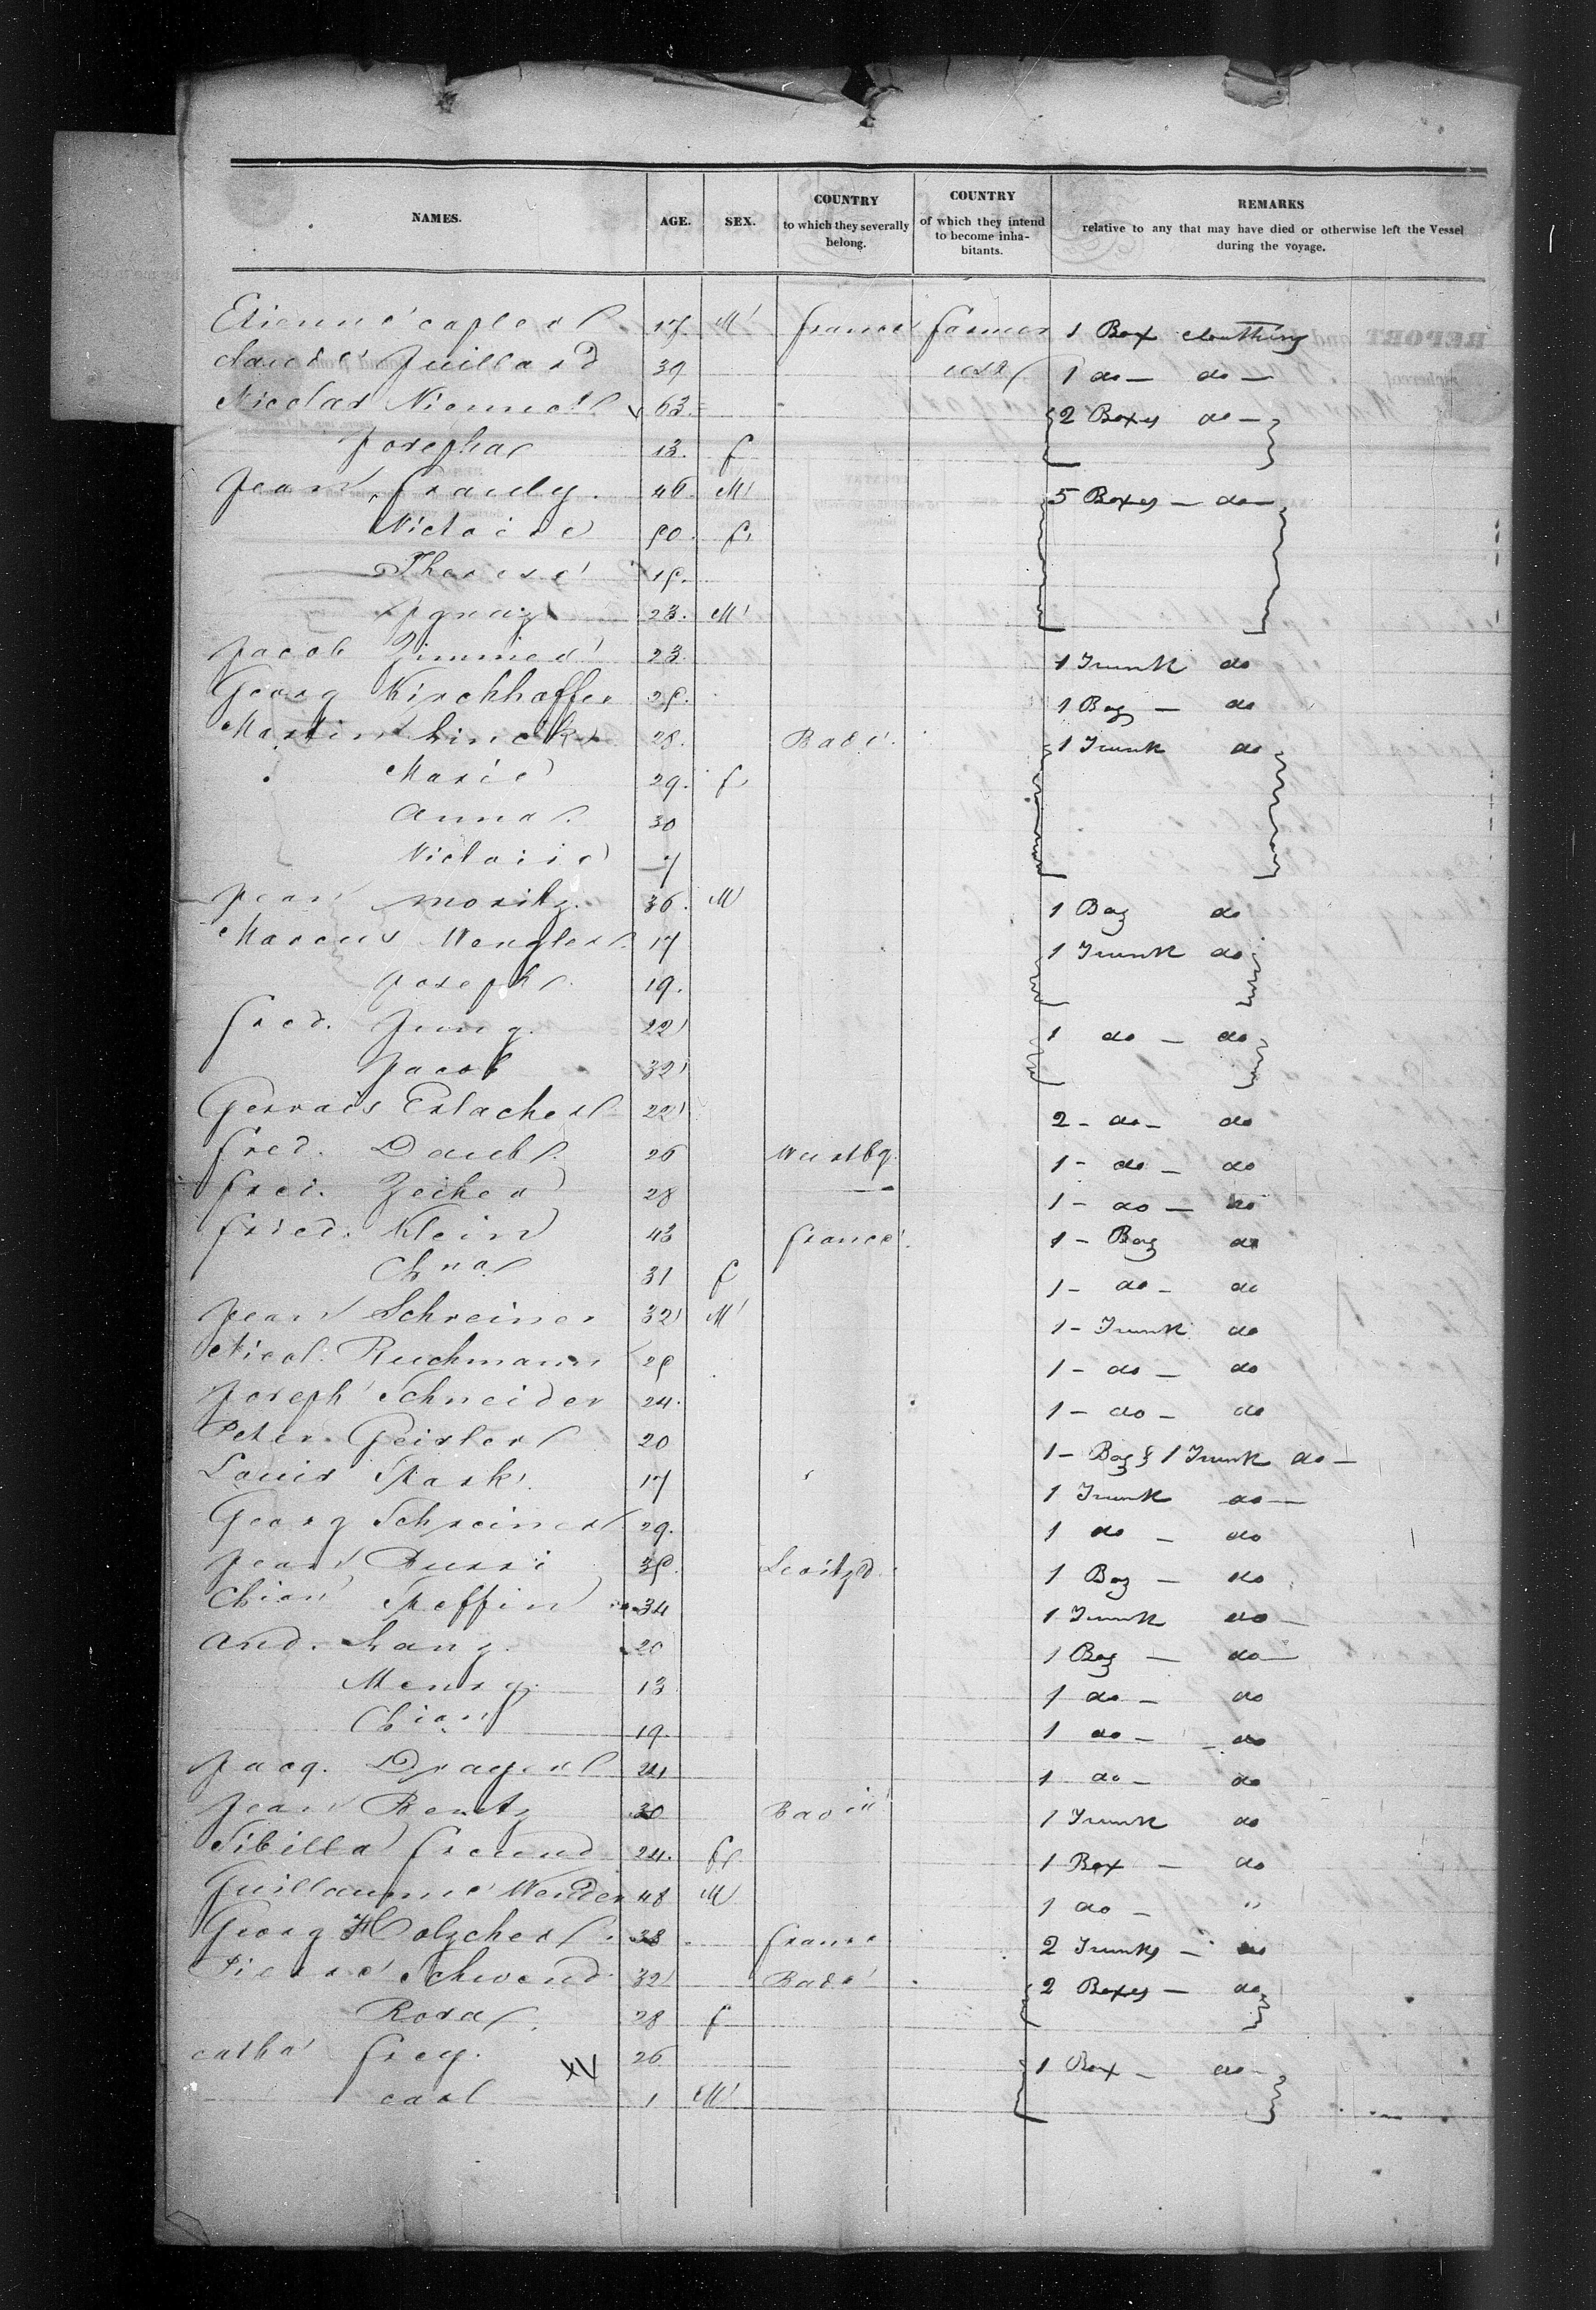 NAMES. AGE. SEX. COUNTRY to which they severally belong. COUNTRY of which they intend to become inhabitants. REMARKS relative to any that may have died or otherwise left the Vessel during the voyage.
Etienne 17 M france farmer 1 Box clouthing
Claude Juillard 39 usa 1 do — do —
Nicolas 63 2 Boxes do —
Josepha 13. f
Jean 46 M 5 Boxes — do —
Victoire 50. f
Therese 15.
Ignaz 23. M
Jacob Zimmer 23. 1 Trunk do
Georg Kirchhoffer 25. 1 Bag — do
Martin Linck 28. Bade. 1 Trunk do
Marie 29. f
Anna 30
Victoire 7
Jean Moritz. 36. M 1 Bag do
Marcus Wengler 17 1 Trunk do
Joseph 19.
fred. Jung. 22 1 do — do
Jacob 32
Gervais Erlacher 22 2 - do - do
fred. Daub 26 Wurtbg. 1 - do — do
fred. Zeiher 28 — 1 - do — do
fried. Klein 43 france. 1 - Bag do
Chna 31 f 1 - do - do
Jean Schreiner 32 M 1 - Trunk do
Nicol. Ruchmann 25 1 - do — do
Joseph Schneider 24. 1 — do — do
Peter Geisler 20 1 — Bag & 1 Trunk do —
Louis 17 1 Trunk do —
Georg Schreiner 29. 1 do — do
Jean 35. 1 Bag — do
Chian 34 1 Trunk do —
And. Lang. 20 1 Bag — do —
13 1 do — do
Chian 19. 1 do — do
Jacq. Drayer 24 1 do — do
Jean Bentz 30 1 Trunk do
Sibilla freund 24. f 1 Box — do
Guillaume 48 M 1 do — "
Georg Holzcher 38 france 2 Trunks — do
Pierre Schwend 32 Bade 2 Boxes — do
Rosa 28 f
catha frey. 26 1 Box — do
XV
carl 1 M